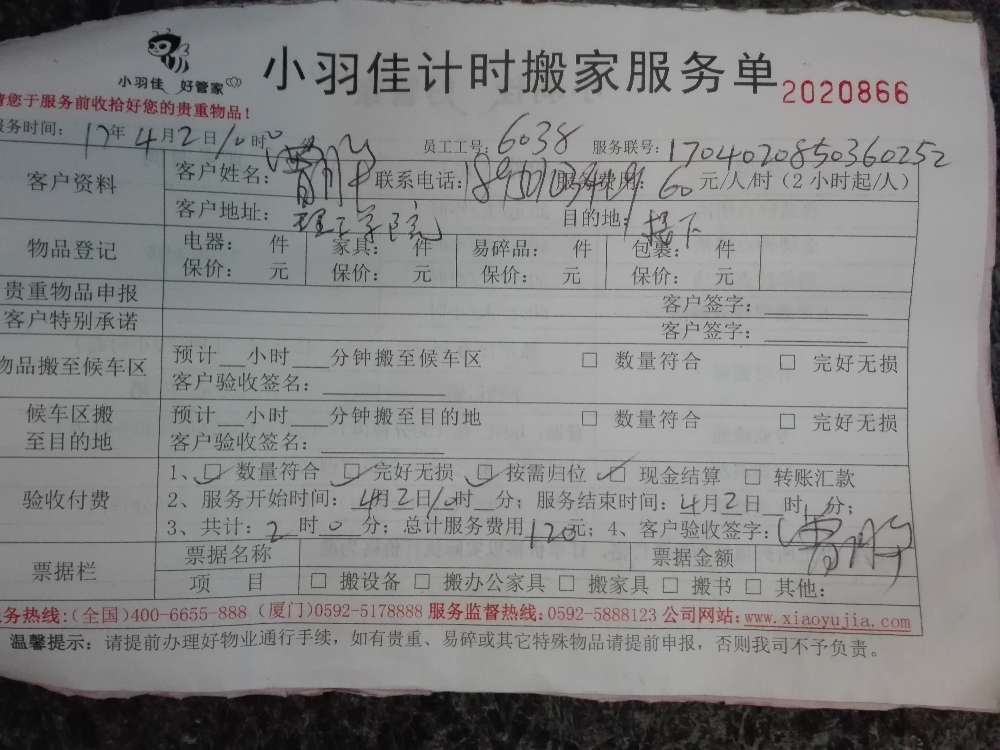 小羽佳 好管家
小羽佳计时搬家服务单
2020866
请您于服务前收拾好您的贵重物品!
服务时间: 17年4月2日10时 员工工号: 6038 服务联号: 1704020850360252
客户资料 客户姓名: 联系电话: 服务费用: 60 元/人/时 (2小时起/人)
客户地址: 理工学院 目的地: 楼下
物品登记 电器: 件 家具: 件 易碎品: 件 包裹: 件
保价: 元 保价: 元 保价: 元 保价: 元
贵重物品申报 客户签字:
客户特别承诺 客户签字:
物品搬至候车区 预计__小时___分钟搬至候车区 □ 数量符合 □ 完好无损
客户验收签名:
候车区搬至目的地 预计__小时___分钟搬至目的地 □ 数量符合 □ 完好无损
客户验收签名:
验收付费 1、☑ 数量符合 ☑ 完好无损 ☑ 按需归位 ☑ 现金结算 □ 转账汇款
2、服务开始时间: 4月2日10时__分; 服务结束时间: 4月2日__时__分;
3、共计: 2时0分; 总计服务费用120元; 4、客户验收签字:
票据栏 票据名称 票据金额
项 目 □ 搬设备 □ 搬办公家具 □ 搬家具 □ 搬书 □ 其他:
服务热线:(全国)400-6655-888 (厦门)0592-5178888 服务监督热线:0592-5888123 公司网站:www.xiaoyujia.com
温馨提示: 请提前办理好物业通行手续，如有贵重、易碎或其它特殊物品请提前申报，否则我司不予负责。